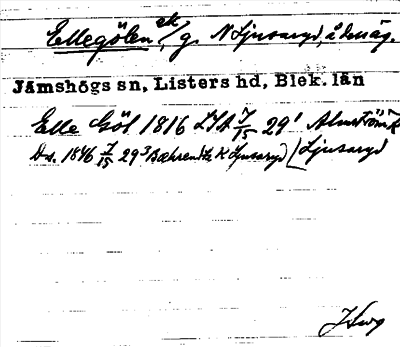 Ellegölen, ek, g. N Ljusaryd, ådmäg.
Jämshögs sn, Listers hd, Blek. län
Elle Göl 1816 LSA 7/15 29¹ Almström K
Ds. 1846 7/15 29³ Bæhrendtz K Ljusaryd [Ljusaryd